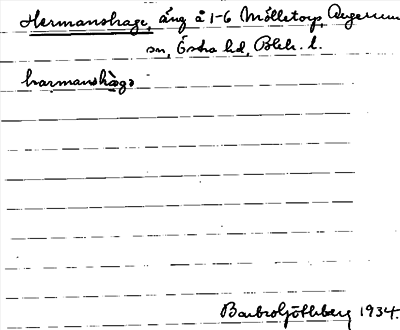 Hermanshage, äng å 1-6 Mölletorp, Augerum
sn, Östra hd, Blek. l.
harmanshàgə
Barbro Götlberg 1934.